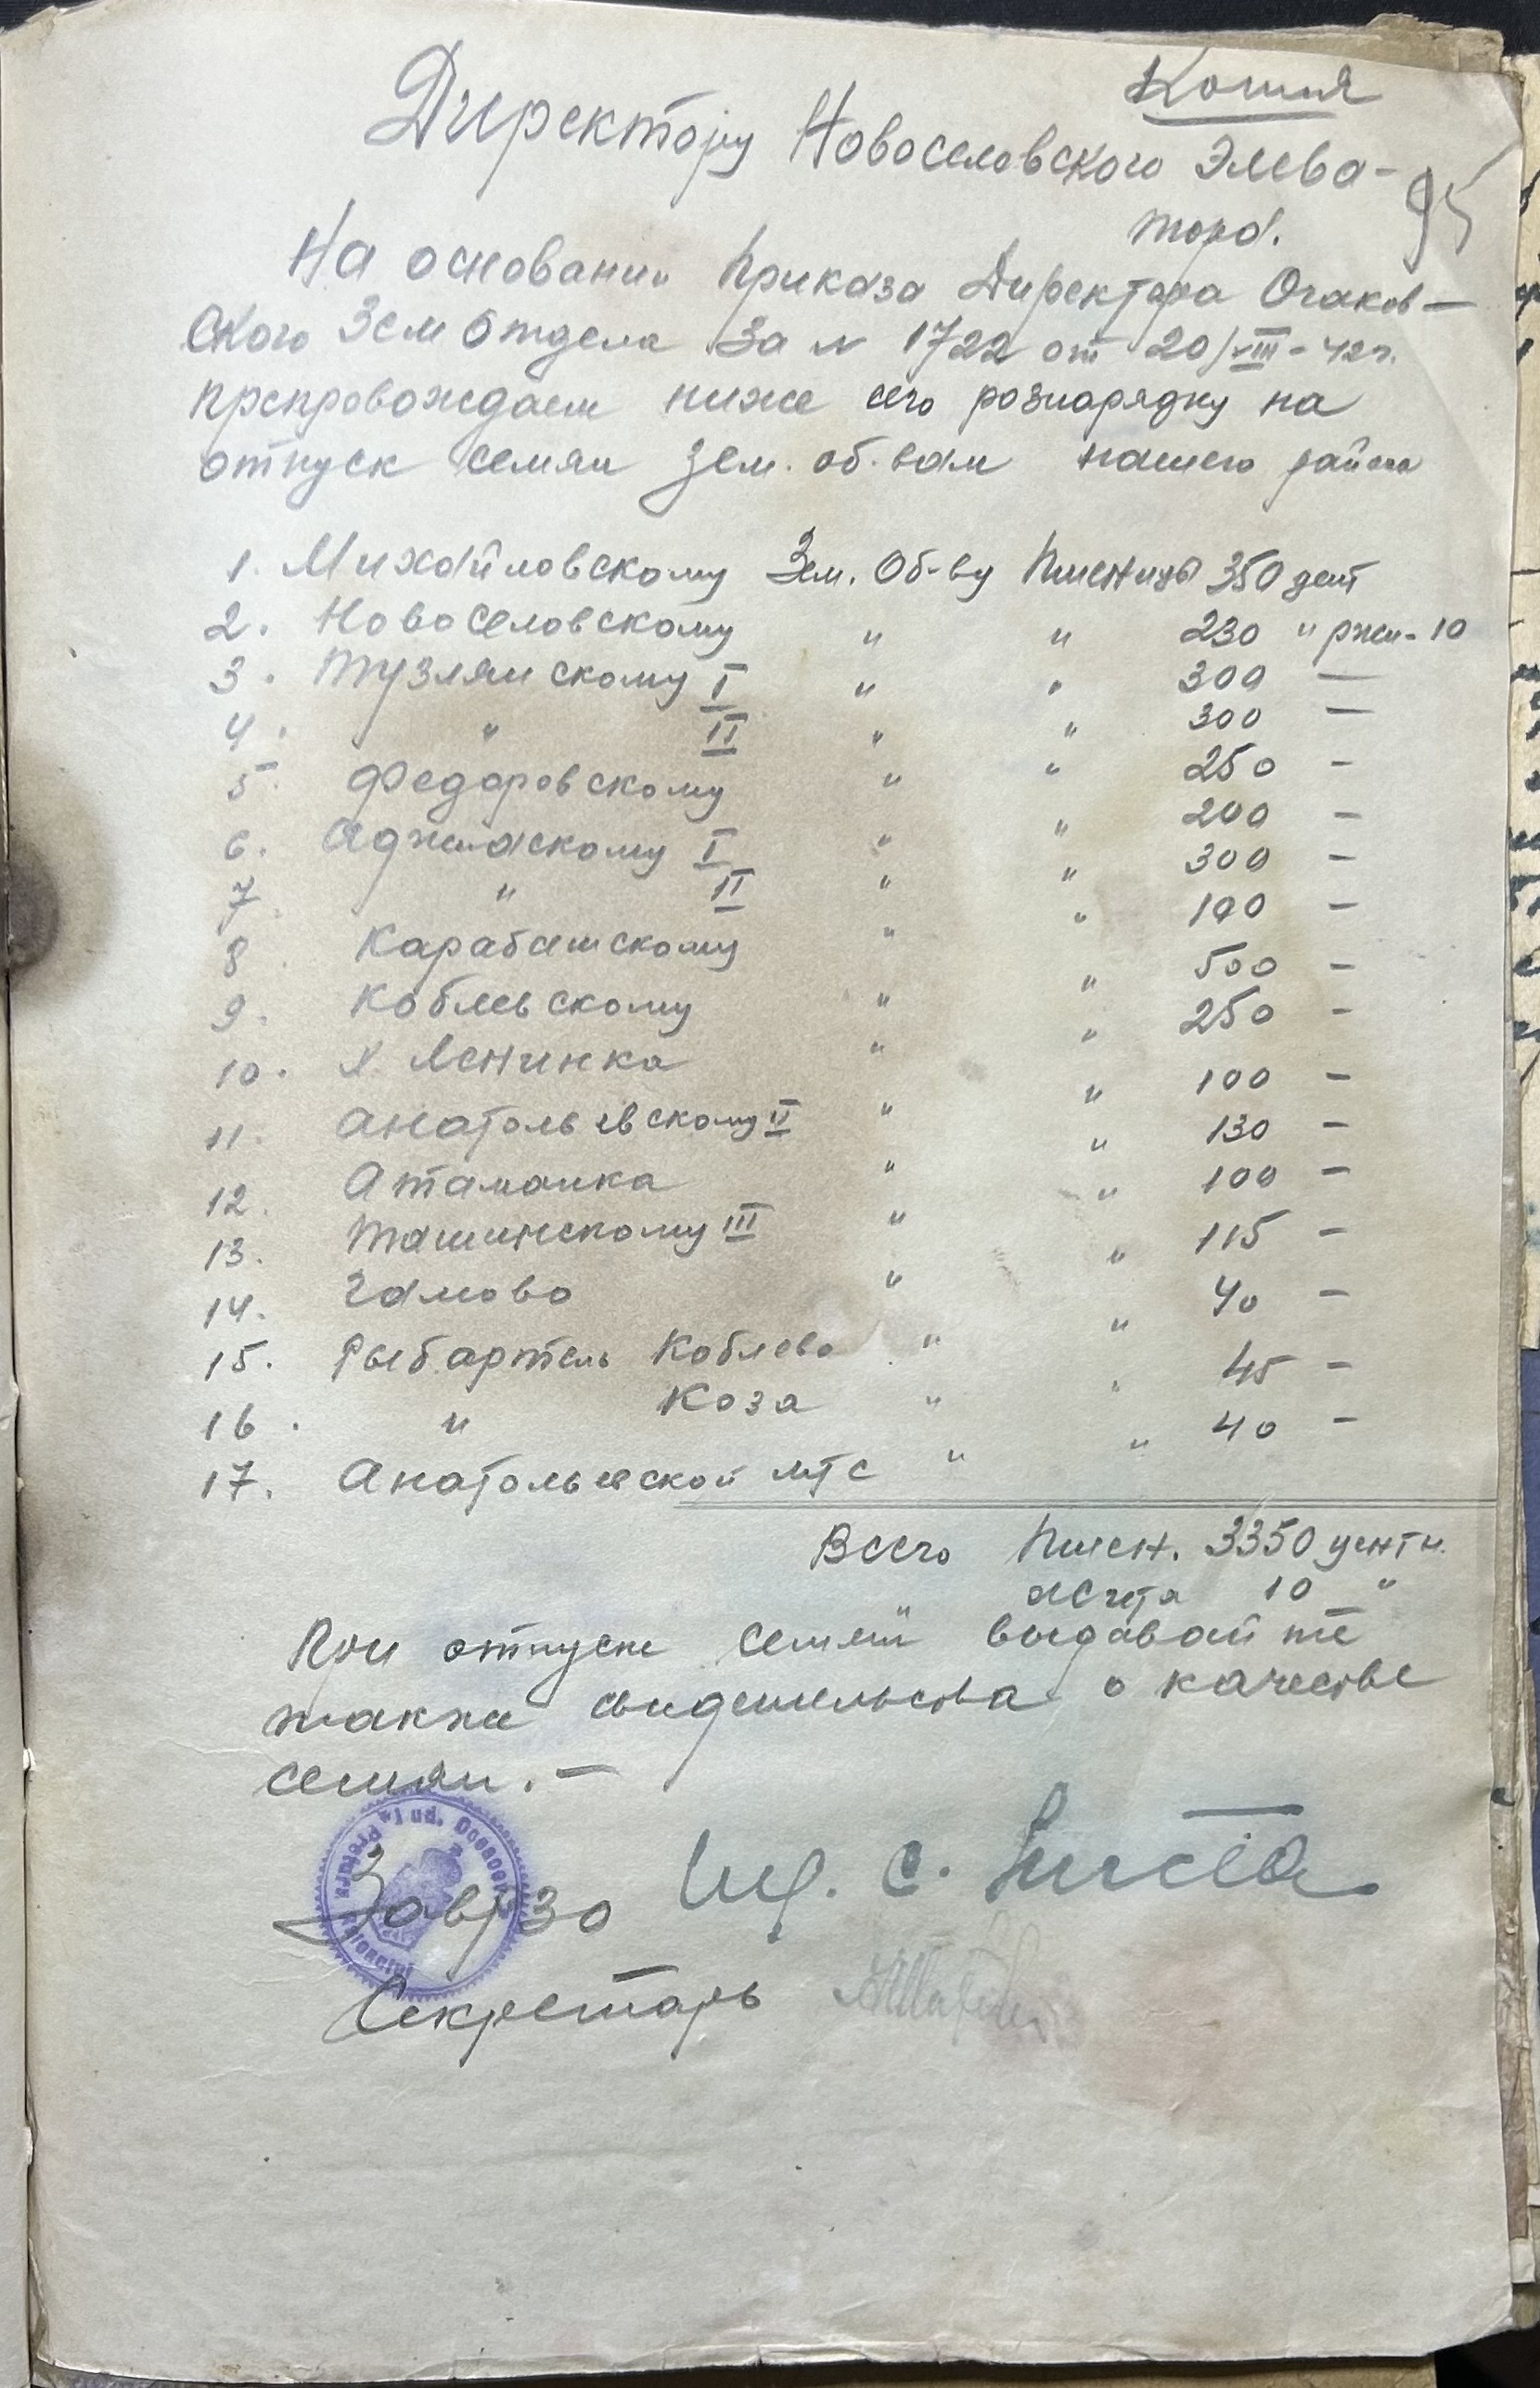 Копия
Директору Новоселовского Элева-
95
тора.
На основании Приказа Директора Очаков-
ского Зем Отдела За № 1722 от 20/VIII-42 г.
препровождаем ниже сего розпорядку на
отпуск семян Зем. об-вам нашего района
1. Михайловскому Зем. Об-ву Пшеницы 350 цент
2. Новоселовскому " " 230 " ржи-10
3. Тузлянскому I " " 300 —
4. " II " " 300 —
5. Федоровскому " " 250 -
6. Аджиаскому I " " 200 -
7 " II " " 300 -
8 Карабашскому " " 100 -
9. Коблевскому " " 500 -
10. х. Ленинка " " 250 -
11. Анатольевскому II " " 100 -
12. Атаманка " " 130 -
13. Ташинскому III " " 100 -
14. Гамово " " 115 -
15. Рыбартель Коблево " " 40 -
16. " Коза " " 45 -
17. Анатольевской МТС " " 40 -
Всего Пшен. 3350 центн.
" 10 "
При отпуске семян выдавайте
также свидетельства о качестве
семян. —
Заврзо
Секретарь